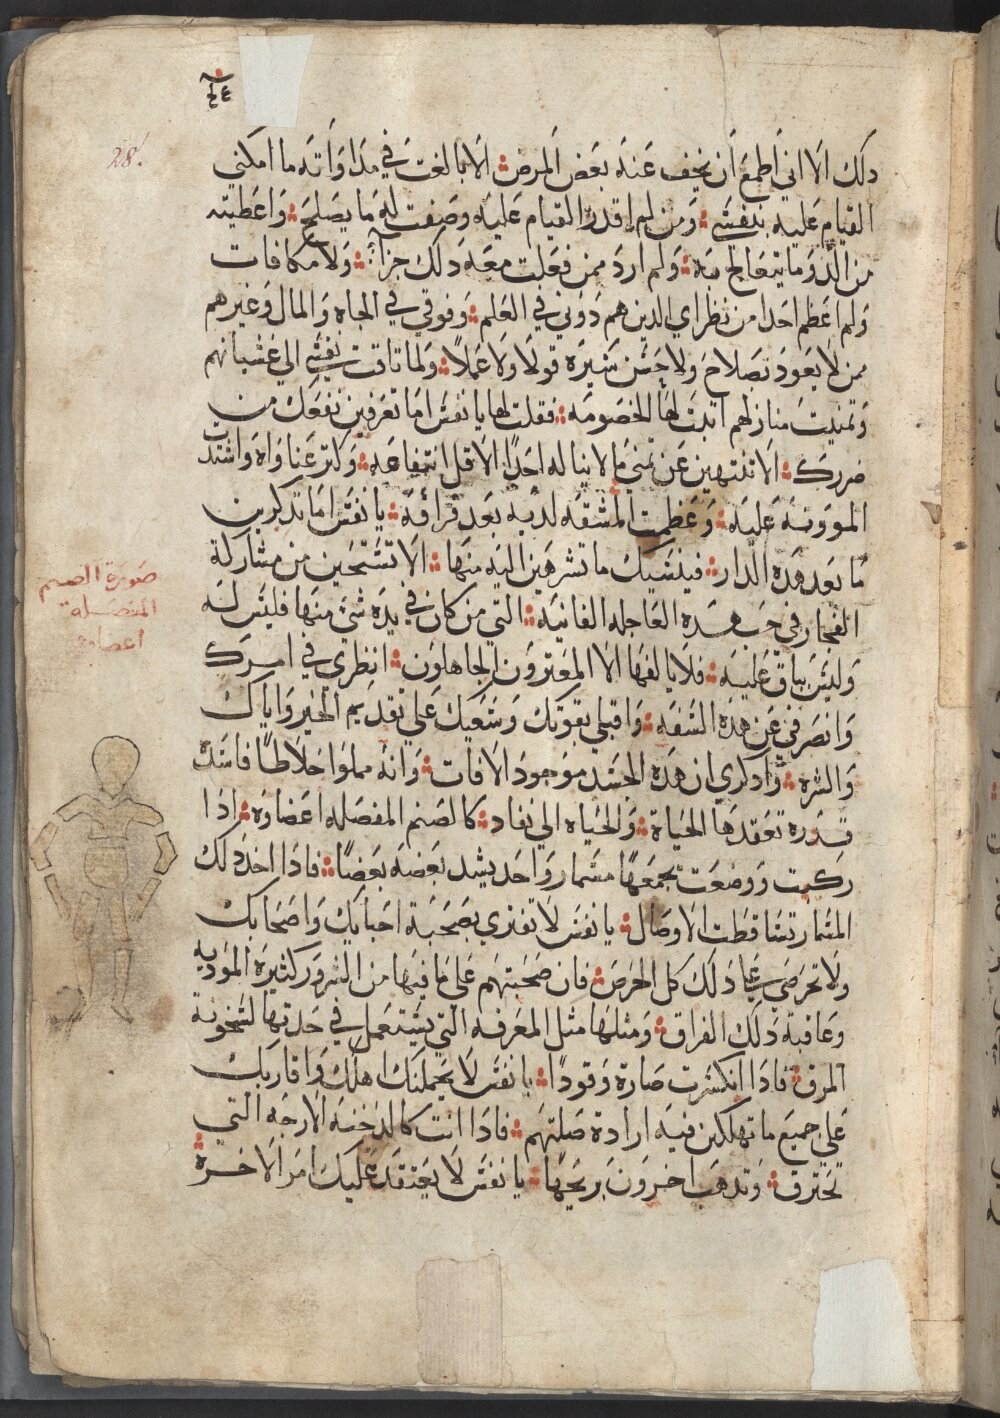 28.
دلك الا اني اطمع ان يخف عنه بعض المرض ⁘ الا بالغت في مداواته ما امكنني
القيام عليه بنفسي ⁘ ومن لم اقدر القيام عليه وصفت له ما يصلح ⁘ واعطيته
من الدوا ما يتعالج به ⁘ ولم ارد ممن فعلت معه دلك جزاً ⁘ ولا مكافات
ولم اغظم احدا من نظراي الدين هم دوني في العلم ⁘ وفوقي في الجاه والمال وغيرهم
ممن لا يعود بصلاح ولا حسن سيره قولا ولا عملاً ⁘ ولما تاقت نفسي الي غشيانهم
وتمنيت منازلهم اتبت لها الخصومه ⁘ فقلت لها يا نفس اما تعرفين نفعك من
ضررك ⁘ الا تنتهين عن تمني ما لا يناله احداً الا قل انتفاعه ⁘ وكتر عناواه واشتد
الموونه عليه ⁘ وعظمت المشقه لديه بعد فراقه ⁘ يا نفس اما تدكرين
ما بعد هده الدار ⁘ فينسيك ما تشرهين اليه منها ⁘ الا تستحين من مشاركة
الفجار في حب هده العاجله الفانيه ⁘ التي من كان في يده شي منها فليس له
وليس بباق عليه ⁘ فلا يالفها الا المغترون الجاهلون ⁘ انظري في امرك
وانصرفي عن هده السفه ⁘ واقبلي بقوتك وسعيك علي تقديم الخير واياك
والشره ⁘ وادكري ان هده الجسد موجود الافات ⁘ وانه مملوا اخلاطاً فاسدة
قدره تعقدها الحياة ⁘ والحياه الي نفاد ⁘ كالصنم المفصله اعضاوه ⁘ ادا
ركبت ووضعت يجمعها مسمار واحد يشد بعضه بعضاً ⁘ فادا اخد دلك
المسمار تساقطت الاوصال ⁘ يا نفس لا تغتري بصحبة احبايك واصحابك
ولا تحرصي علي دلك كل الحرص ⁘ فان صحبتهم علي ما فيها من السرور كثيرة الموديه
وعاقبة دلك الفراق ⁘ ومثلها مثل المغرفه التي يستعمل في جدتها لسخونة
المرق ⁘ فادا انكسرت صارة وقوداً ⁘ يا نفس لا يحملنك اهلك واقاربك
علي جميع ما تهلكين فيه ارادة صلتهم ⁘ فادا انت كالدخنه الارجه التي
تحترق ⁘ وتدهب اخرون بريحها ⁘ يا نفس لا يعتقد عليك امر الاخرة
صورة الصنم
المفصلة
اعضاوه